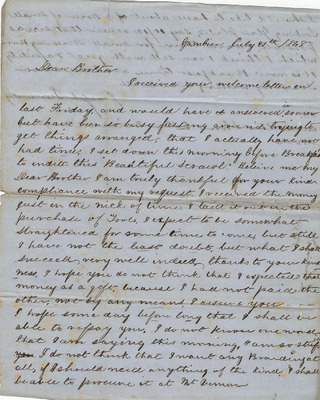 Gambier July 21th, 1848
Dear Brother
I received your, welcome letter on
last Friday, and would have answered sooner
but have been so busy fussing around, trying to
get things arranged, that I actually have not
had time, I set down this morning before Breakfast
to indite this Beautiful Scrawl. Believe me my
Dear Brother I am truly thankful for your kind
compliance with my request, I received the money
just in the nick of time I laid it out in the
purchase of Tools, I expect to be somewhat
straightened for some time to come, but still
I have not the least doubt, but what I shall
succeed, very well indeed, thanks to your kind
ness, I hope you do not think, that I expected that
money as a gift, because I had not paid the
other, not by any means I assure you
I hope some day before long that I shall be
able to repay you, I do not know one word,
that I am saying this morning, I am so
I do not think that I want any Boarding at
all, if I should need anything of the kind, I shall
be able to procure it at Mt Vernon